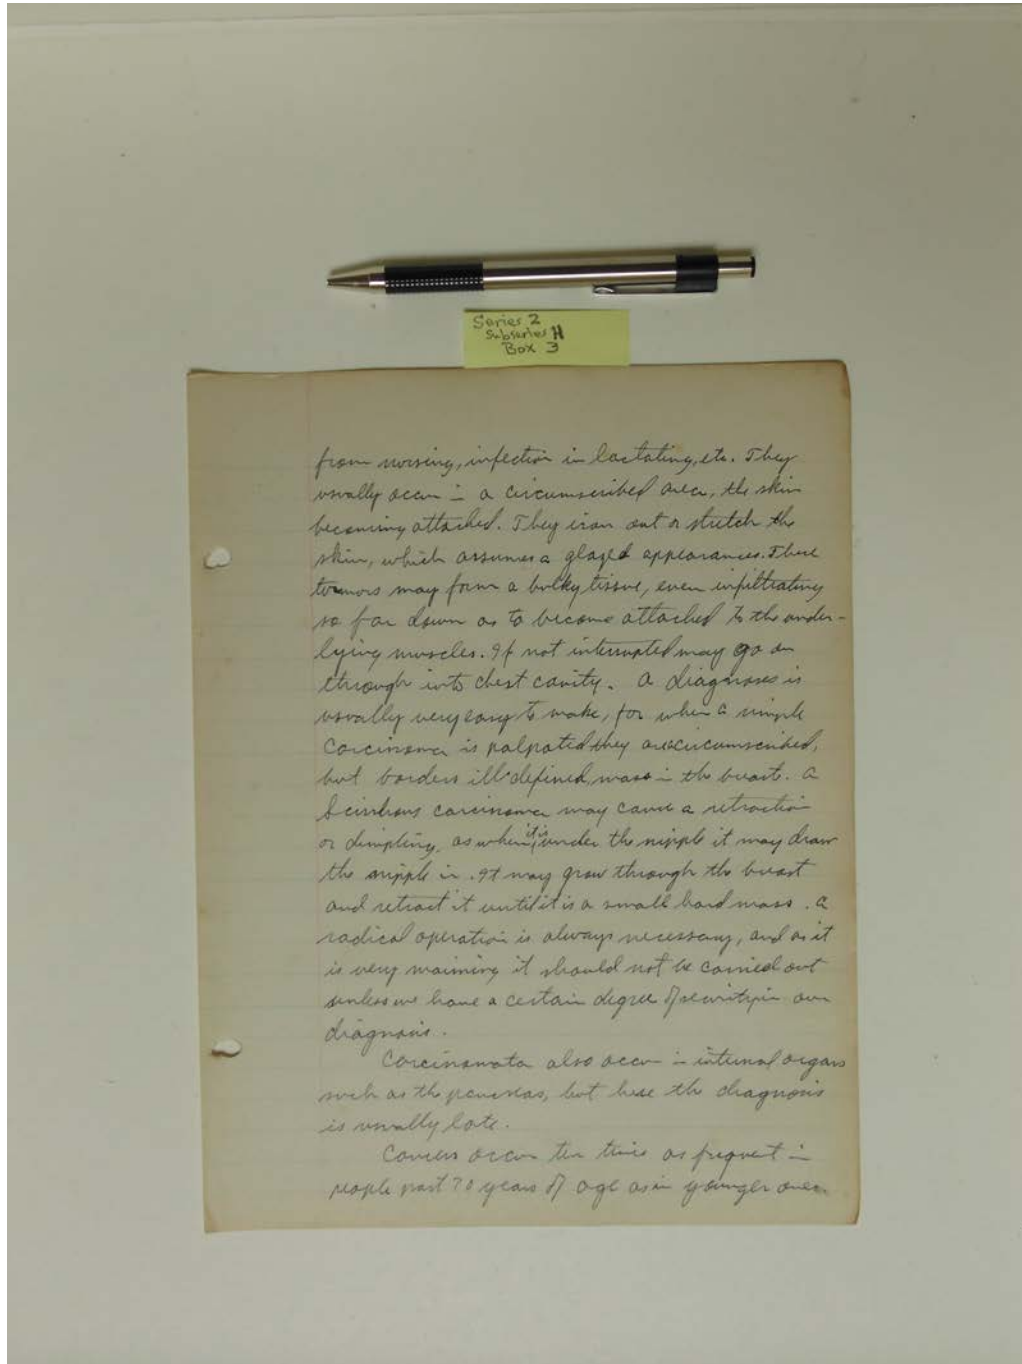 Series 2
Subseries H
Box 3
from nursing, infection in lactating, etc. They
usually occur in a circumscribed area, the skin
becoming attached. They iron out or stretch the
skin, which assumes a glazed appearances. These
tumors may form a bulky tissue, even infiltrating
so far down as to become attached to the under-
lying muscles. If not interrupted may go on
through into chest cavity. A diagnoses is
usually very easy to make, for when a simple
carcinoma is palpated they are circumscribed,
but borders ill-defined, mass in the breast. A
Scirrhous carcinoma may cause a retraction
or dimpling, as when it is under the nipple it may draw
the nipple in. It may grow through the breast
and retract it until it is a small hard mass. A
radical operation is always necessary, and as it
is very maiming it should not be carried out
unless we have a certain degree of security in our
diagnosis.
Carcinomata also occur in internal organs
such as the pancreas, but here the diagnosis
is usually late.
Cancers occur ten times as frequent in
people past 70 years of age as in younger ones